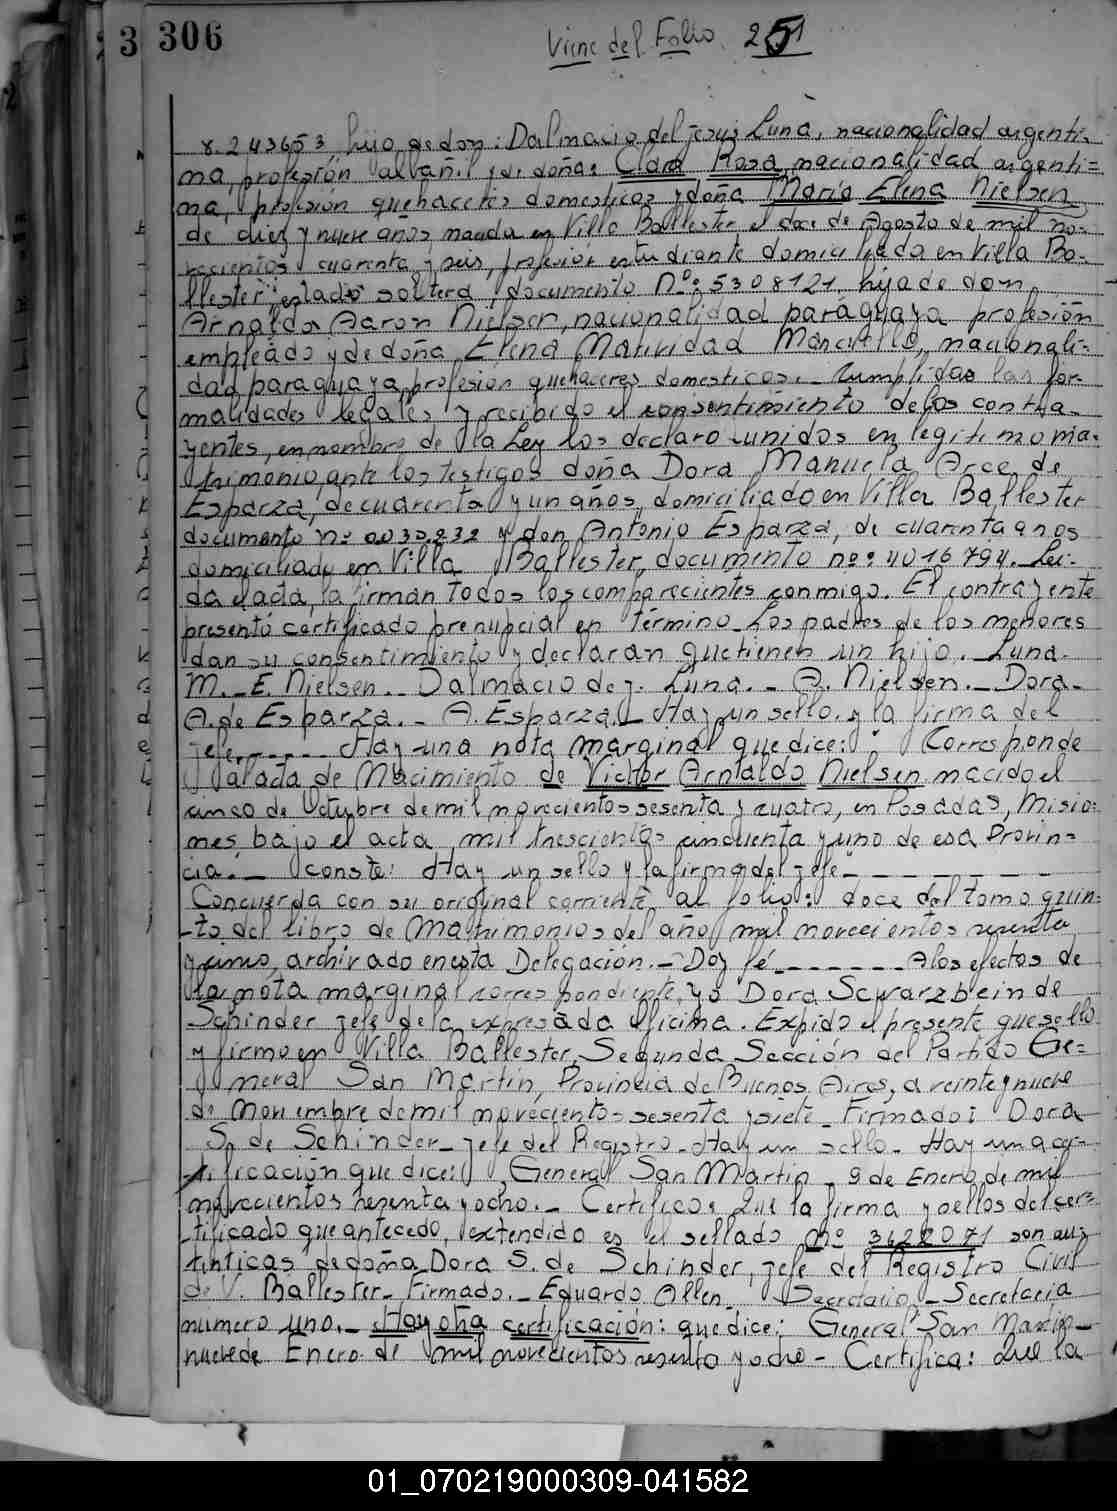 3 306
Viene del Folio 251
8.243653 hijo de don: Dalmacio del Jesus Luna, nacionalidad argenti-
na, profesión albañil y de doña: Clara Rosa nacionalidad argenti=
na, profesión quehaceres domesticos y doña Maria Elena Nielsen
de diez y nueve años nacida en Villa Ballester el doce de Agosto de mil no-
vecientos cuarenta y seis, profesión estudiante domiciliada en Villa Ba-
llester, estado soltera, documento Nº: 5308121. hija de don,
Arnaldo Aaron Nielsen, nacionalidad paraguaya profesión
empleado y de doña Elena Natividad Mancuello, nacionali-
dad paraguaya, profesión quehaceres domesticos. - cumplidas las for-
malidades legales y recibido el consentimiento de los contra-
yentes, en nombre de la Ley los declaro unidos en legitimo ma-
trimonio, ante los testigos doña Dora Manuela Arce de
Esparza, de cuarenta y un años, domiciliado en Villa Ballester
documento nº 0030.232 y don Antonio Esparza, de cuarenta anos
domiciliado en Villa Ballester, documento nº: 4016794. Lei-
da el acta, la firman todos los comparecientes conmigo. El contrayente
presentó certificado prenupcial en término. Los padres de los menores
dan su consentimiento y declaran que tienen un hijo. - Luna.
M. - E. Nielsen. - Dalmacio de J. Luna. - A. Nielsen. - Dora-
A. de Esparza. - A. Esparza. - Hay un sello. y la firma del
jefe. - - - - Hay una nota marginal que dice: Corresponde
al acta de Nacimiento de Victor Arnaldo Nielsen nacido el
cinco de Octubre de mil novecientos sesenta y cuatro, en Posadas, Misio-
nes, bajo el acta mil trescientos cincuenta y uno de esa Provin=
cia. - conste: Hay un sello y la firma del jefe - - - - - - - -
Concuerda con su original corriente al folio: doce del tomo quin-
to del libro de Matrimonios del año mil novecientos sesenta
y cinco, archivado en esta Delegación. - Doy fé - - - - - - A los efectos de
la nota marginal correspondiente, yo Dora Scwarzbein de
Schinder jefe de la expresada oficina. Expido el presente que sello
y firmo en Villa Ballester, Segunda Sección del Partido Ge=
neral San Martin, Provincia de Buenos Aires, a veintey nueve
de Noviembre de mil novecientos sesenta y siete. Firmado: Dora
S. de Schinder - jefe del Registro - Hay un sello. Hay una cer-
tificación que dice: General San Martin - 9 de Enero de mil
novecientos sesenta y ocho. - Certifico: Que la firma y sellos del cer=
tificado que antecede, extendido es el sellado Nº 3622071 son au=
tenticas de doña Dora S. de Schinder, jefe del Registro Civil
de V. Ballester - Firmado. - Eduardo Allen - Secretario - Secretaria
numero uno. - Hay otra certificación: que dice: General San Martin -
nueve de Enero de mil novecientos sesenta y ocho - Certifica: Que la
01_070219000309-041582